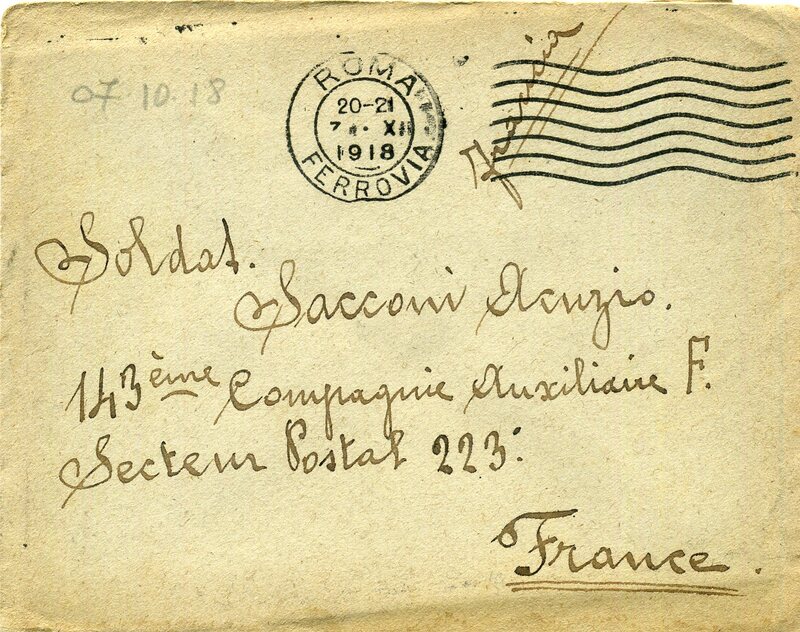 07.10.18
ROMA
20-21
XII
1918
FERROVIA
Francia
Soldat.
Sacconi
143ème Compagnie Auxiliaire F.
Secteur Postal 223.
France.